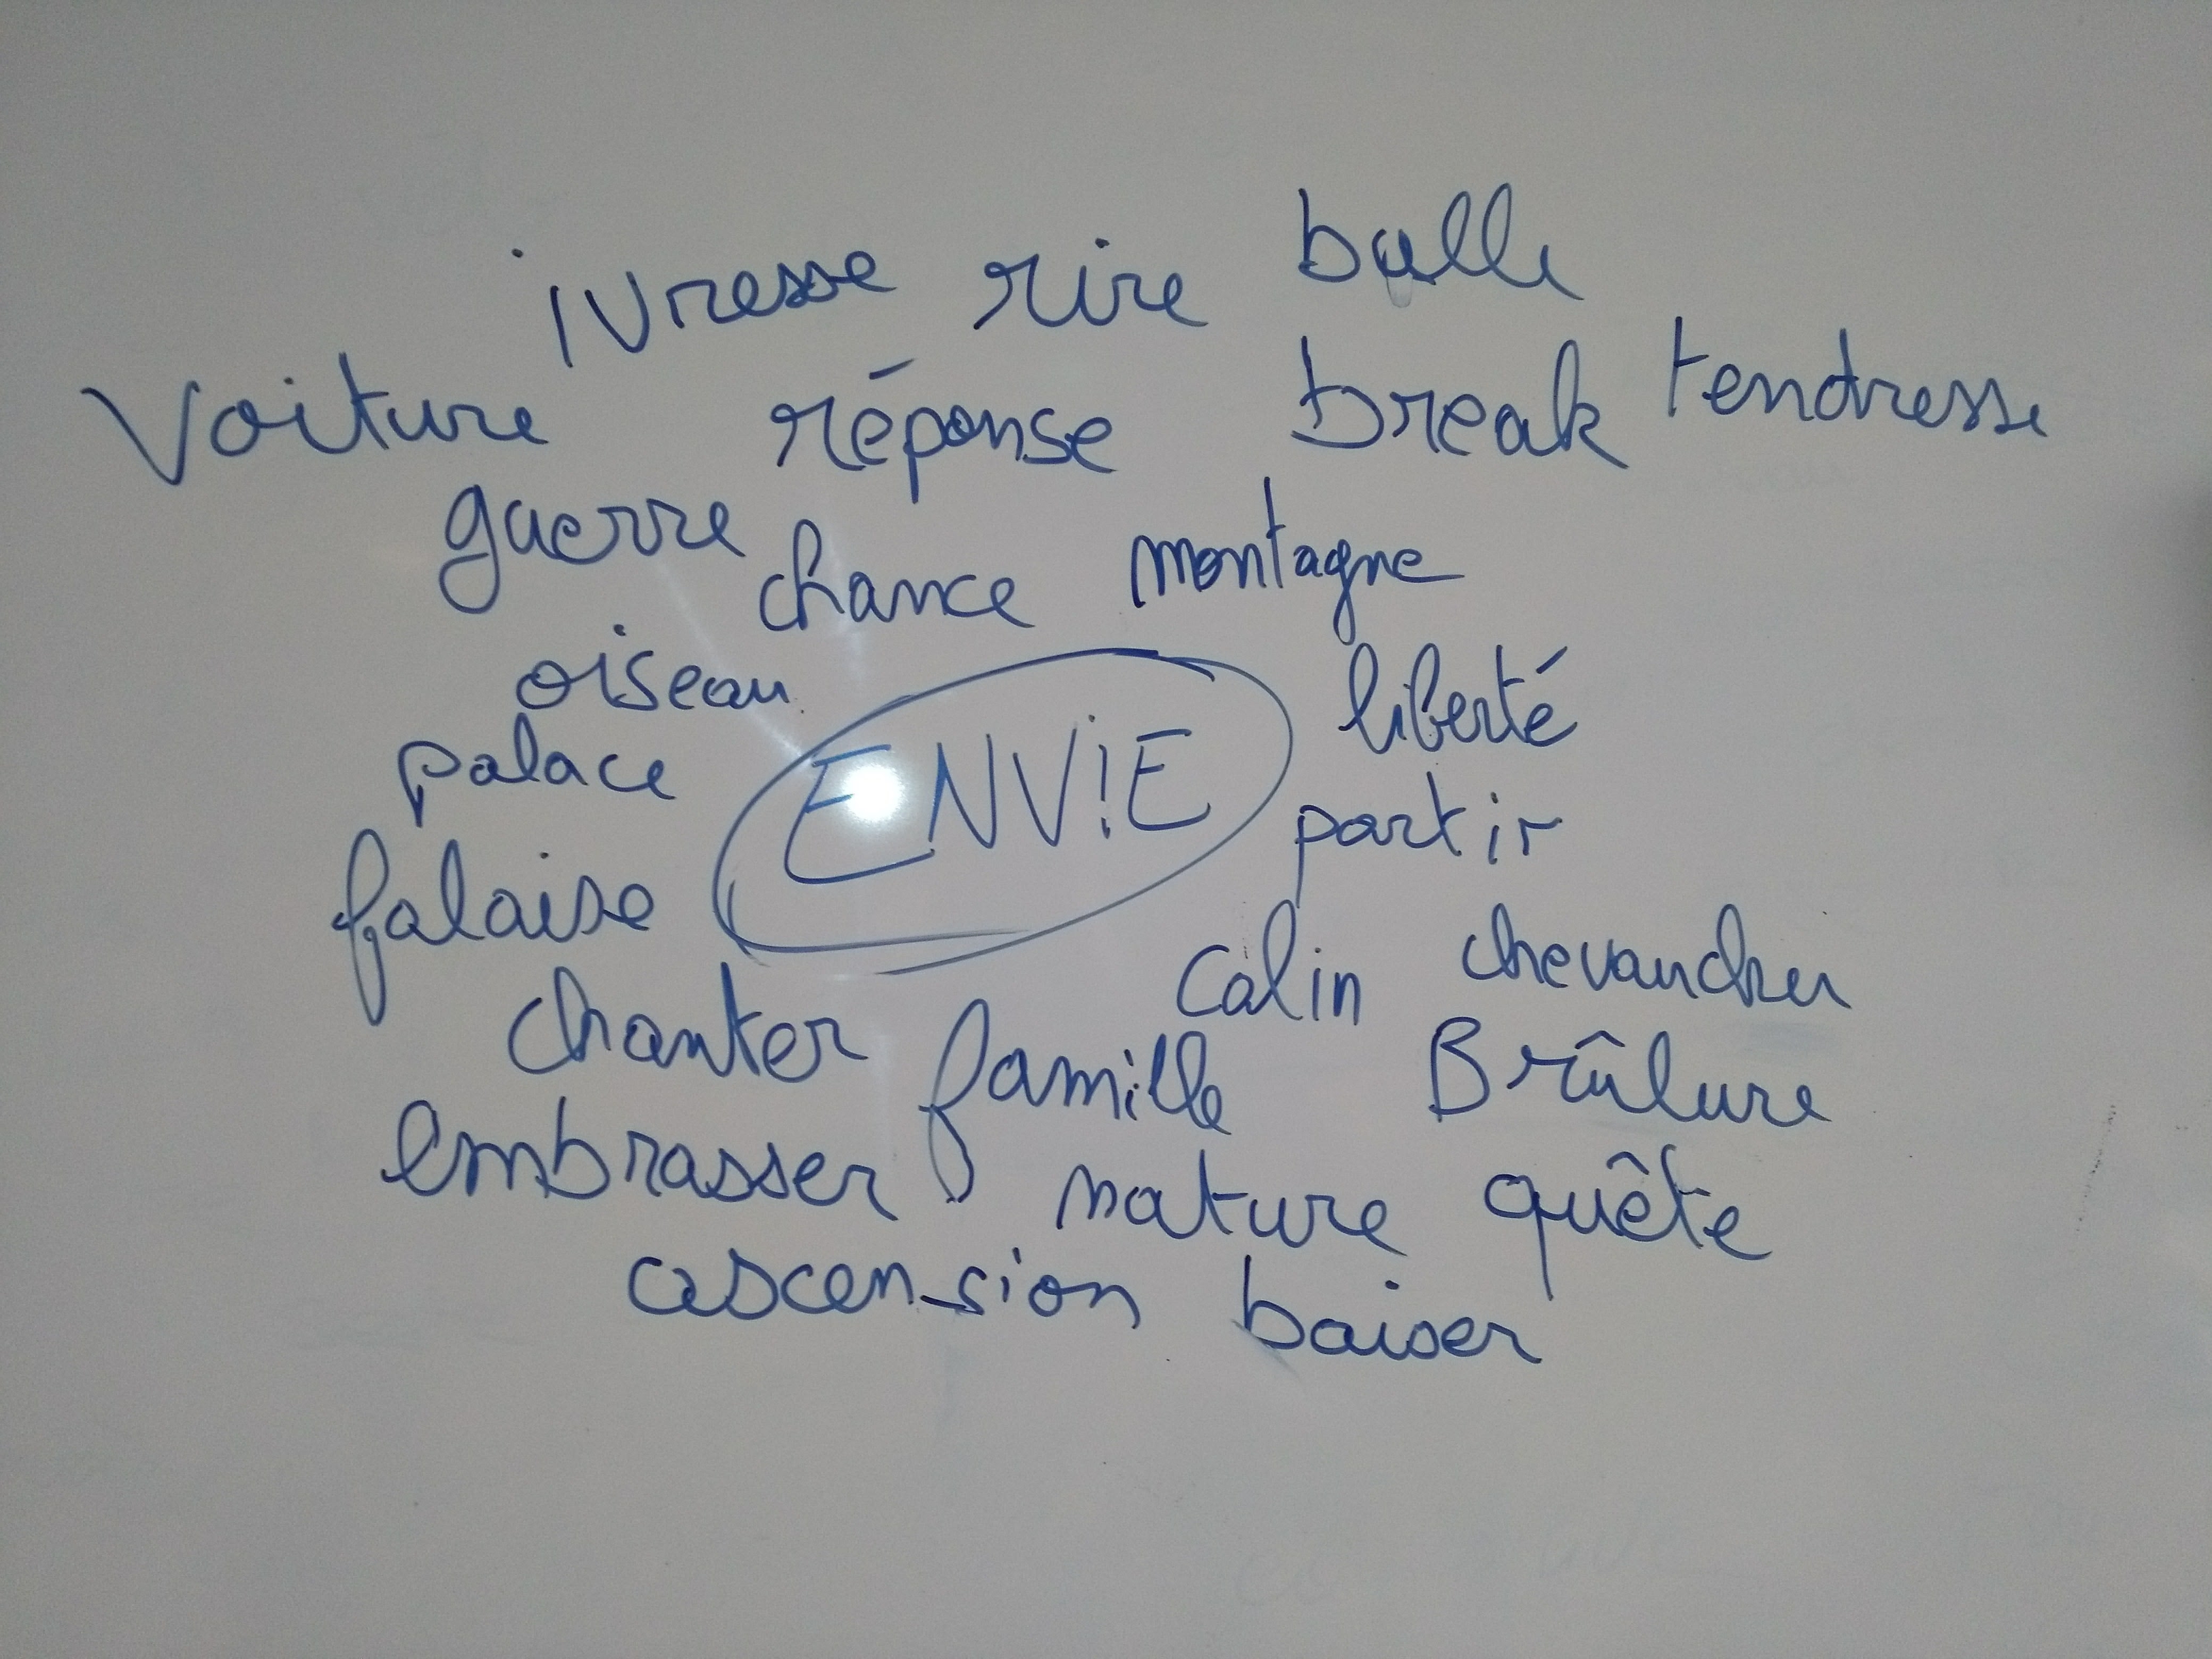 ivresse rire bulle
Voiture réponse break tendresse
guerre chance montagne
oiseau liberté
palace ENVIE partir
falaise calin chevaucher
chanter famille Brûlure
embrasser nature quête
ascension baiser